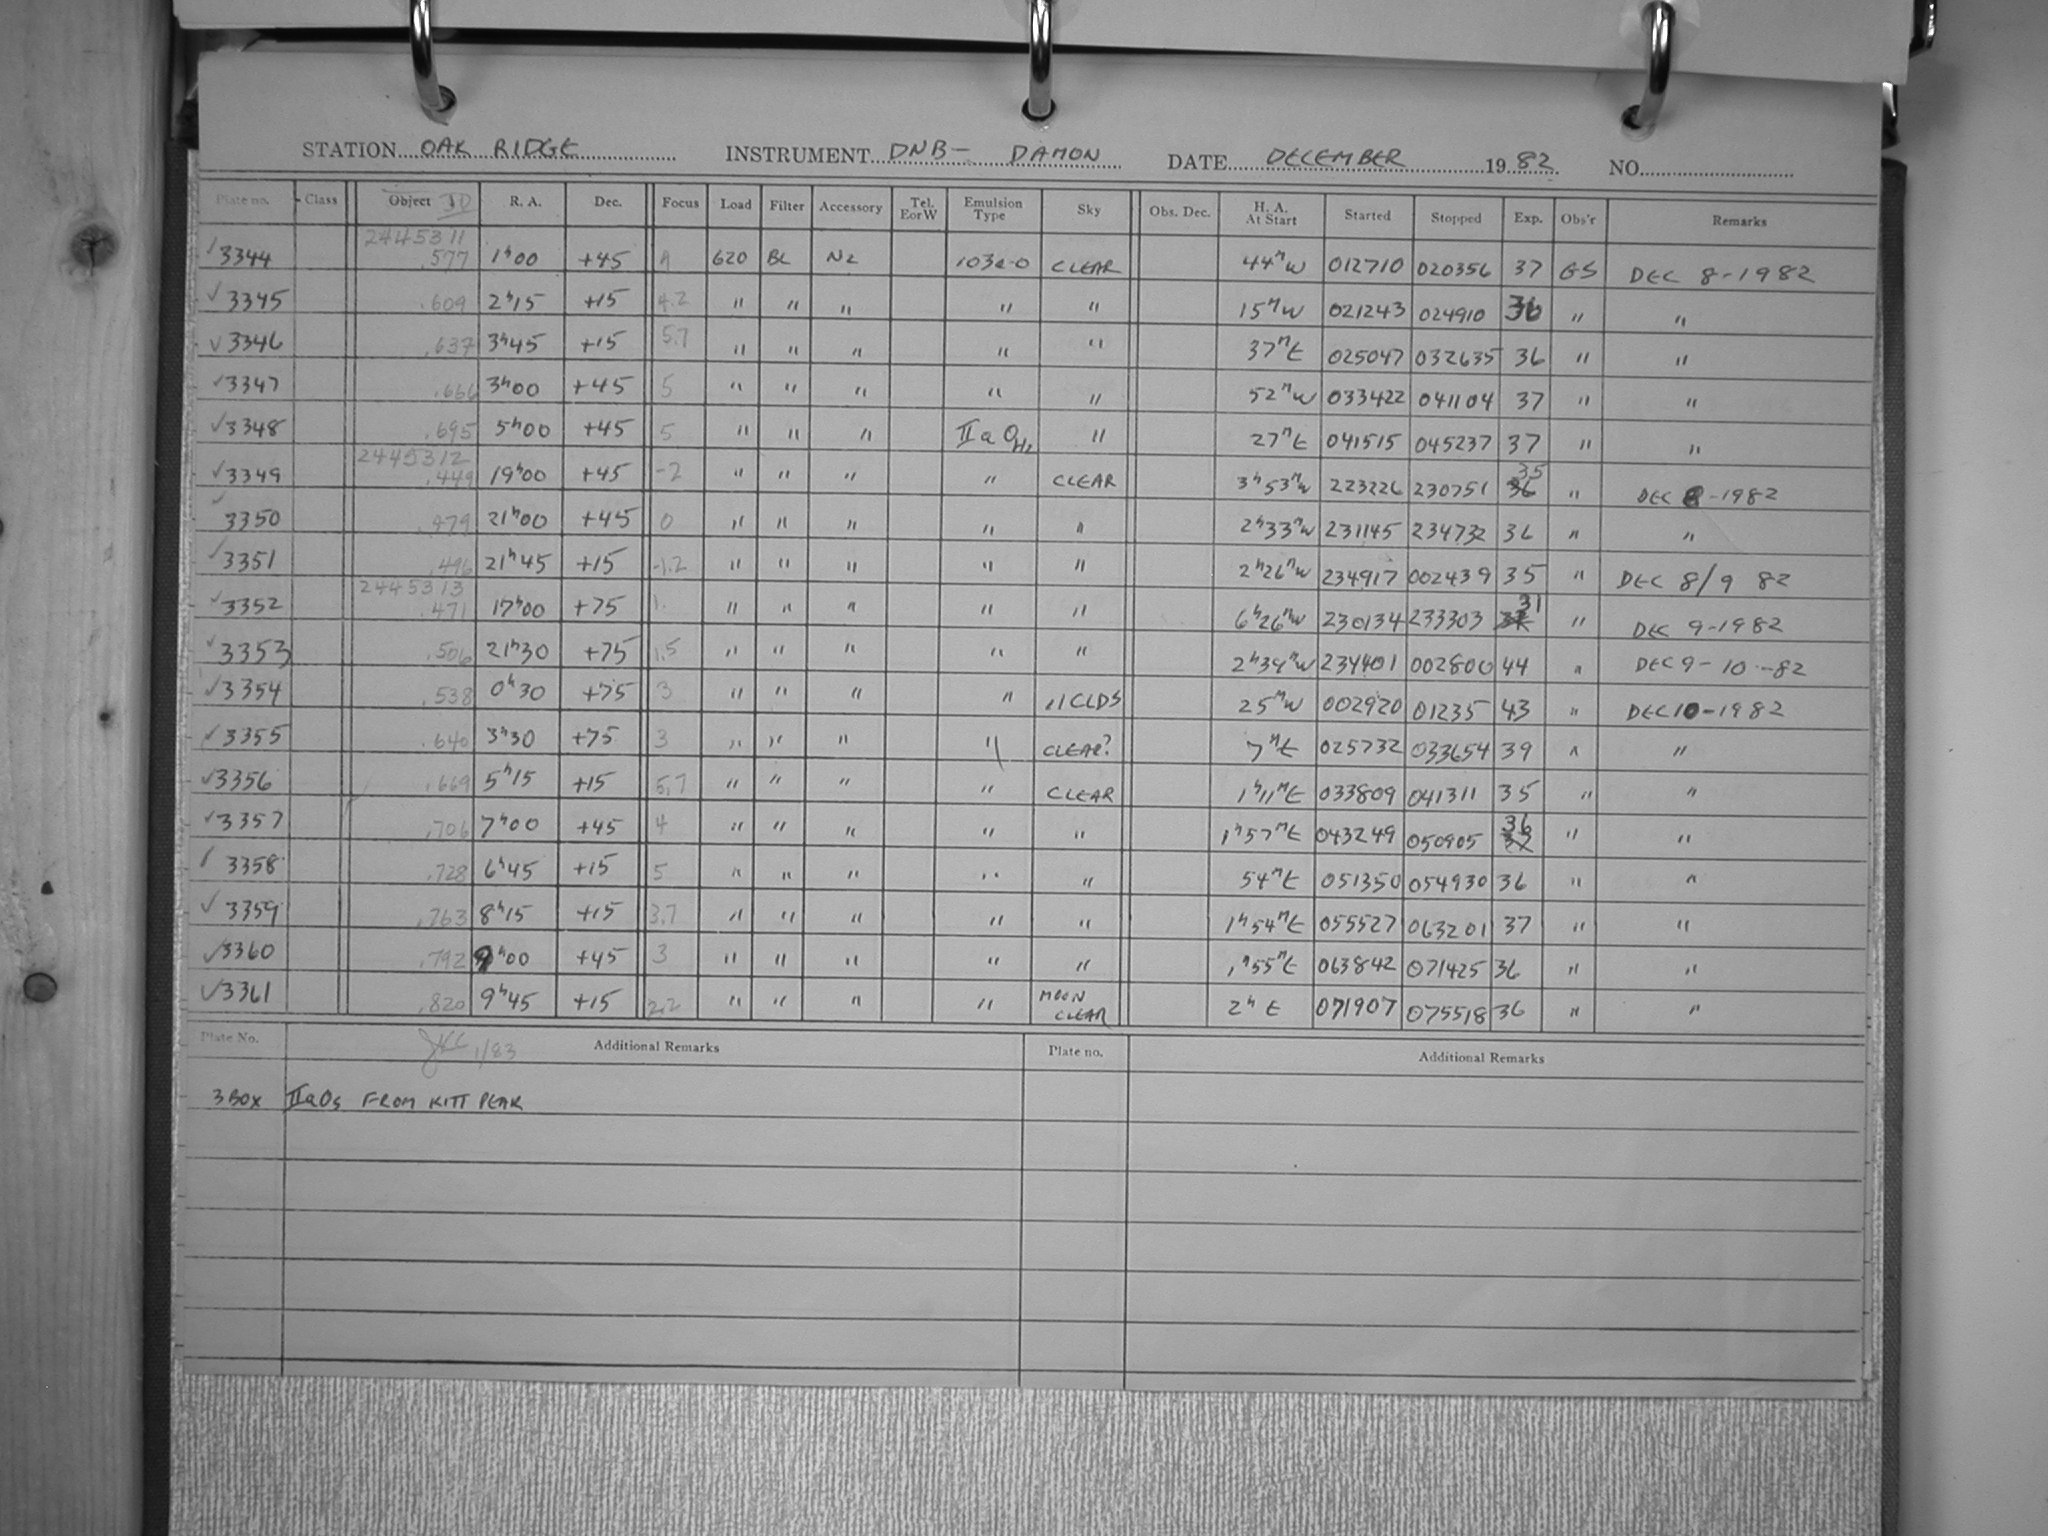 STATION OAK RIDGE INSTRUMENT DNB- DAMON DATE DECEMBER 1982 NO.
Plate no. Class Object JD R. A. Dec. Focus Load Filter Accessory Tel. E or W Emulsion Type Sky Obs. Dec. H. A. At Start Started Stopped Exp. Obs'r Remarks
2445311
✓ 3344 .577 1h00 +45 4 620 BL N2 103a-0 CLEAR 44m W 012710 020356 37 GS DEC 8-1982
✓ 3345 .609 2h15 +15 4.2 " " " " " 15m W 021243 024910 36 " "
✓ 3346 .637 3h45 +15 5.7 " " " " " 37m E 025047 032635 36 " "
✓ 3347 .666 3h00 +45 5 " " " " " 52m W 033422 041104 37 " "
✓ 3348 .695 5h00 +45 5 " " " IIaO " 27m E 041515 045237 37 " "
2445312
✓ 3349 .449 19h00 +45 -2 " " " " CLEAR 3h53m W 223226 230751 35 " DEC 8-1982
✓ 3350 .479 21h00 +45 0 " " " " " 2h33m W 231145 234732 36 " "
✓ 3351 .496 21h45 +15 -1.2 " " " " " 2h26m W 234917 002439 35 " DEC 8/9 82
2445313
✓ 3352 .471 17h00 +75 1. " " " " " 6h26m W 230134 233303 31 " DEC 9-1982
✓ 3353 .506 21h30 +75 1.5 " " " " " 2h39m W 234401 002800 44 " DEC 9-10-82
✓ 3354 .538 0h30 +75 3 " " " " " CLDS 25m W 002920 01235 43 " DEC 10-1982
✓ 3355 .640 3h30 +75 3 " " " " CLEAR? 7m E 025732 033654 39 " "
✓ 3356 .669 5h15 +15 5.7 " " " " CLEAR 1h11m E 033809 041311 35 " "
✓ 3357 .706 7h00 +45 4 " " " " " 1h57m E 043249 050905 36 " "
✓ 3358 .728 6h45 +15 5 " " " " " 54m E 051350 054930 36 " "
✓ 3359 .763 8h15 +15 3.7 " " " " " 1h54m E 055527 063201 37 " "
✓ 3360 .792 9h00 +45 3 " " " " " 1h55m E 063842 071425 36 " "
✓ 3361 .820 9h45 +15 2.2 " " " " MOON CLEAR 2h E 071907 075518 36 " "
Plate No. 1/83 Additional Remarks Plate no. Additional Remarks
3 BOX IIaOs FROM KITT PEAK